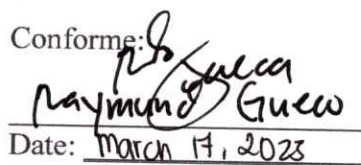 Conforme:
Raymund Gueco
Date: March 17, 2023